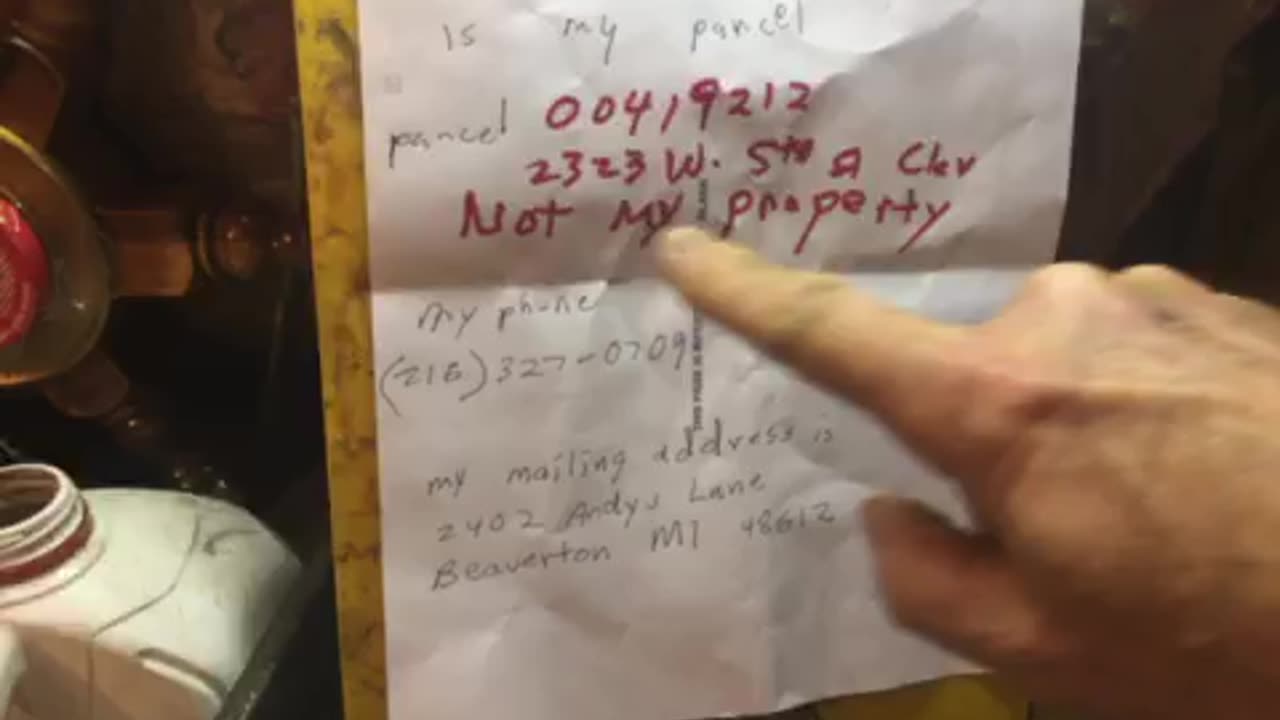 is my parcel
parcel 00419212
2323 W. 5th Clev
Not my property
my phone
(216) 327-0709
my mailing address is
2402 Andys Lane
Beaverton MI 48612
THIS PAGE IS BLANK